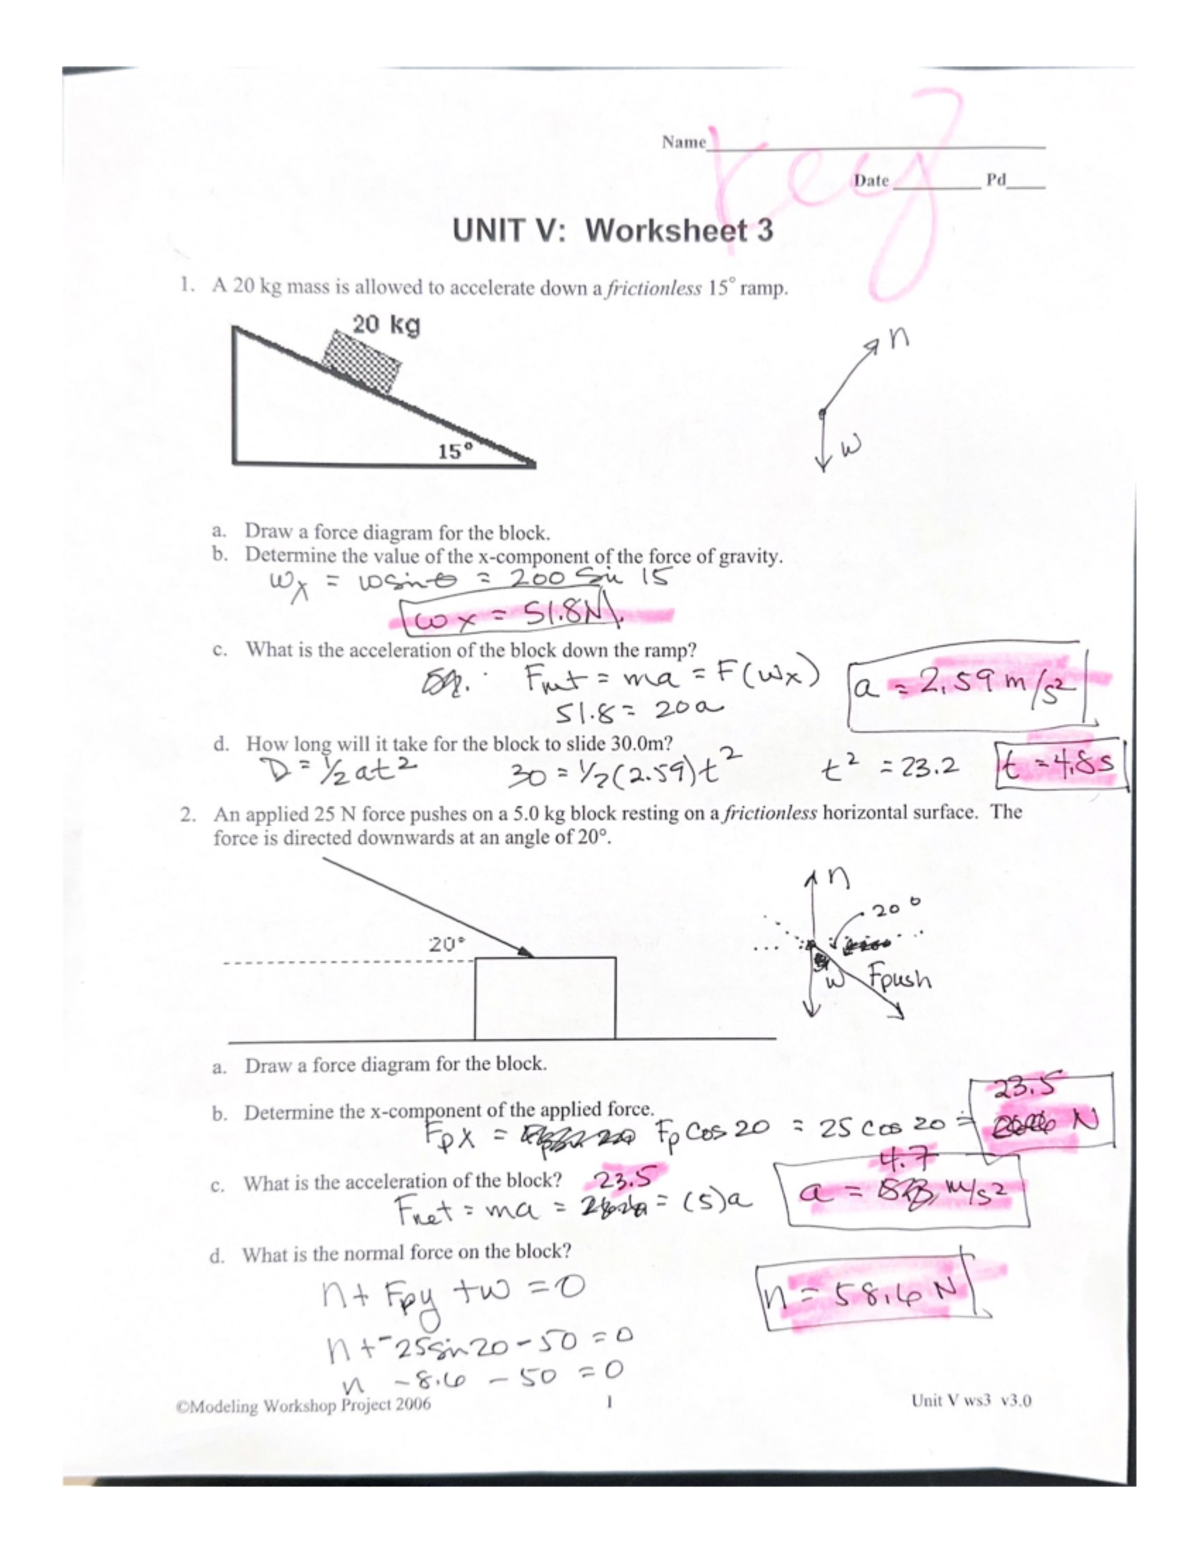 Name
Key
Date Pd
UNIT V: Worksheet 3
1. A 20 kg mass is allowed to accelerate down a frictionless 15° ramp.
20 kg
n
15°
w
a. Draw a force diagram for the block.
b. Determine the value of the x-component of the force of gravity.
wx = wsinθ = 200 Sin 15
wx = 51.8N
c. What is the acceleration of the block down the ramp?
Fnet = ma = F(wx)
a = 2.59 m/s²
51.8 = 20a
d. How long will it take for the block to slide 30.0m?
D = ½ at² 30 = ½(2.59)t² t² = 23.2 t = 4.8s
2. An applied 25 N force pushes on a 5.0 kg block resting on a frictionless horizontal surface. The
force is directed downwards at an angle of 20°.
n
20°
20°
w Fpush
a. Draw a force diagram for the block.
23.5
b. Determine the x-component of the applied force.
Fpx = Fp Cos 20 = 25 cos 20 = N
4.7
c. What is the acceleration of the block? 23.5
Fnet = ma = = (5)a a = m/s²
d. What is the normal force on the block?
n + Fpy + w = 0
n = 58.6 N
n + -25sin20 - 50 = 0
n - 8.6 - 50 = 0
©Modeling Workshop Project 2006 1 Unit V ws3 v3.0